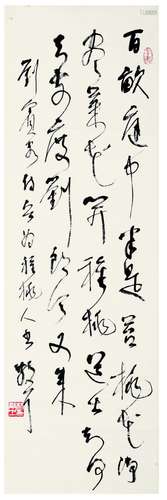 百畝庭中半是苔桃花淨
盡菜花開種桃道士歸何
處前度劉郎今又來
劉賓客詩為種桃人書